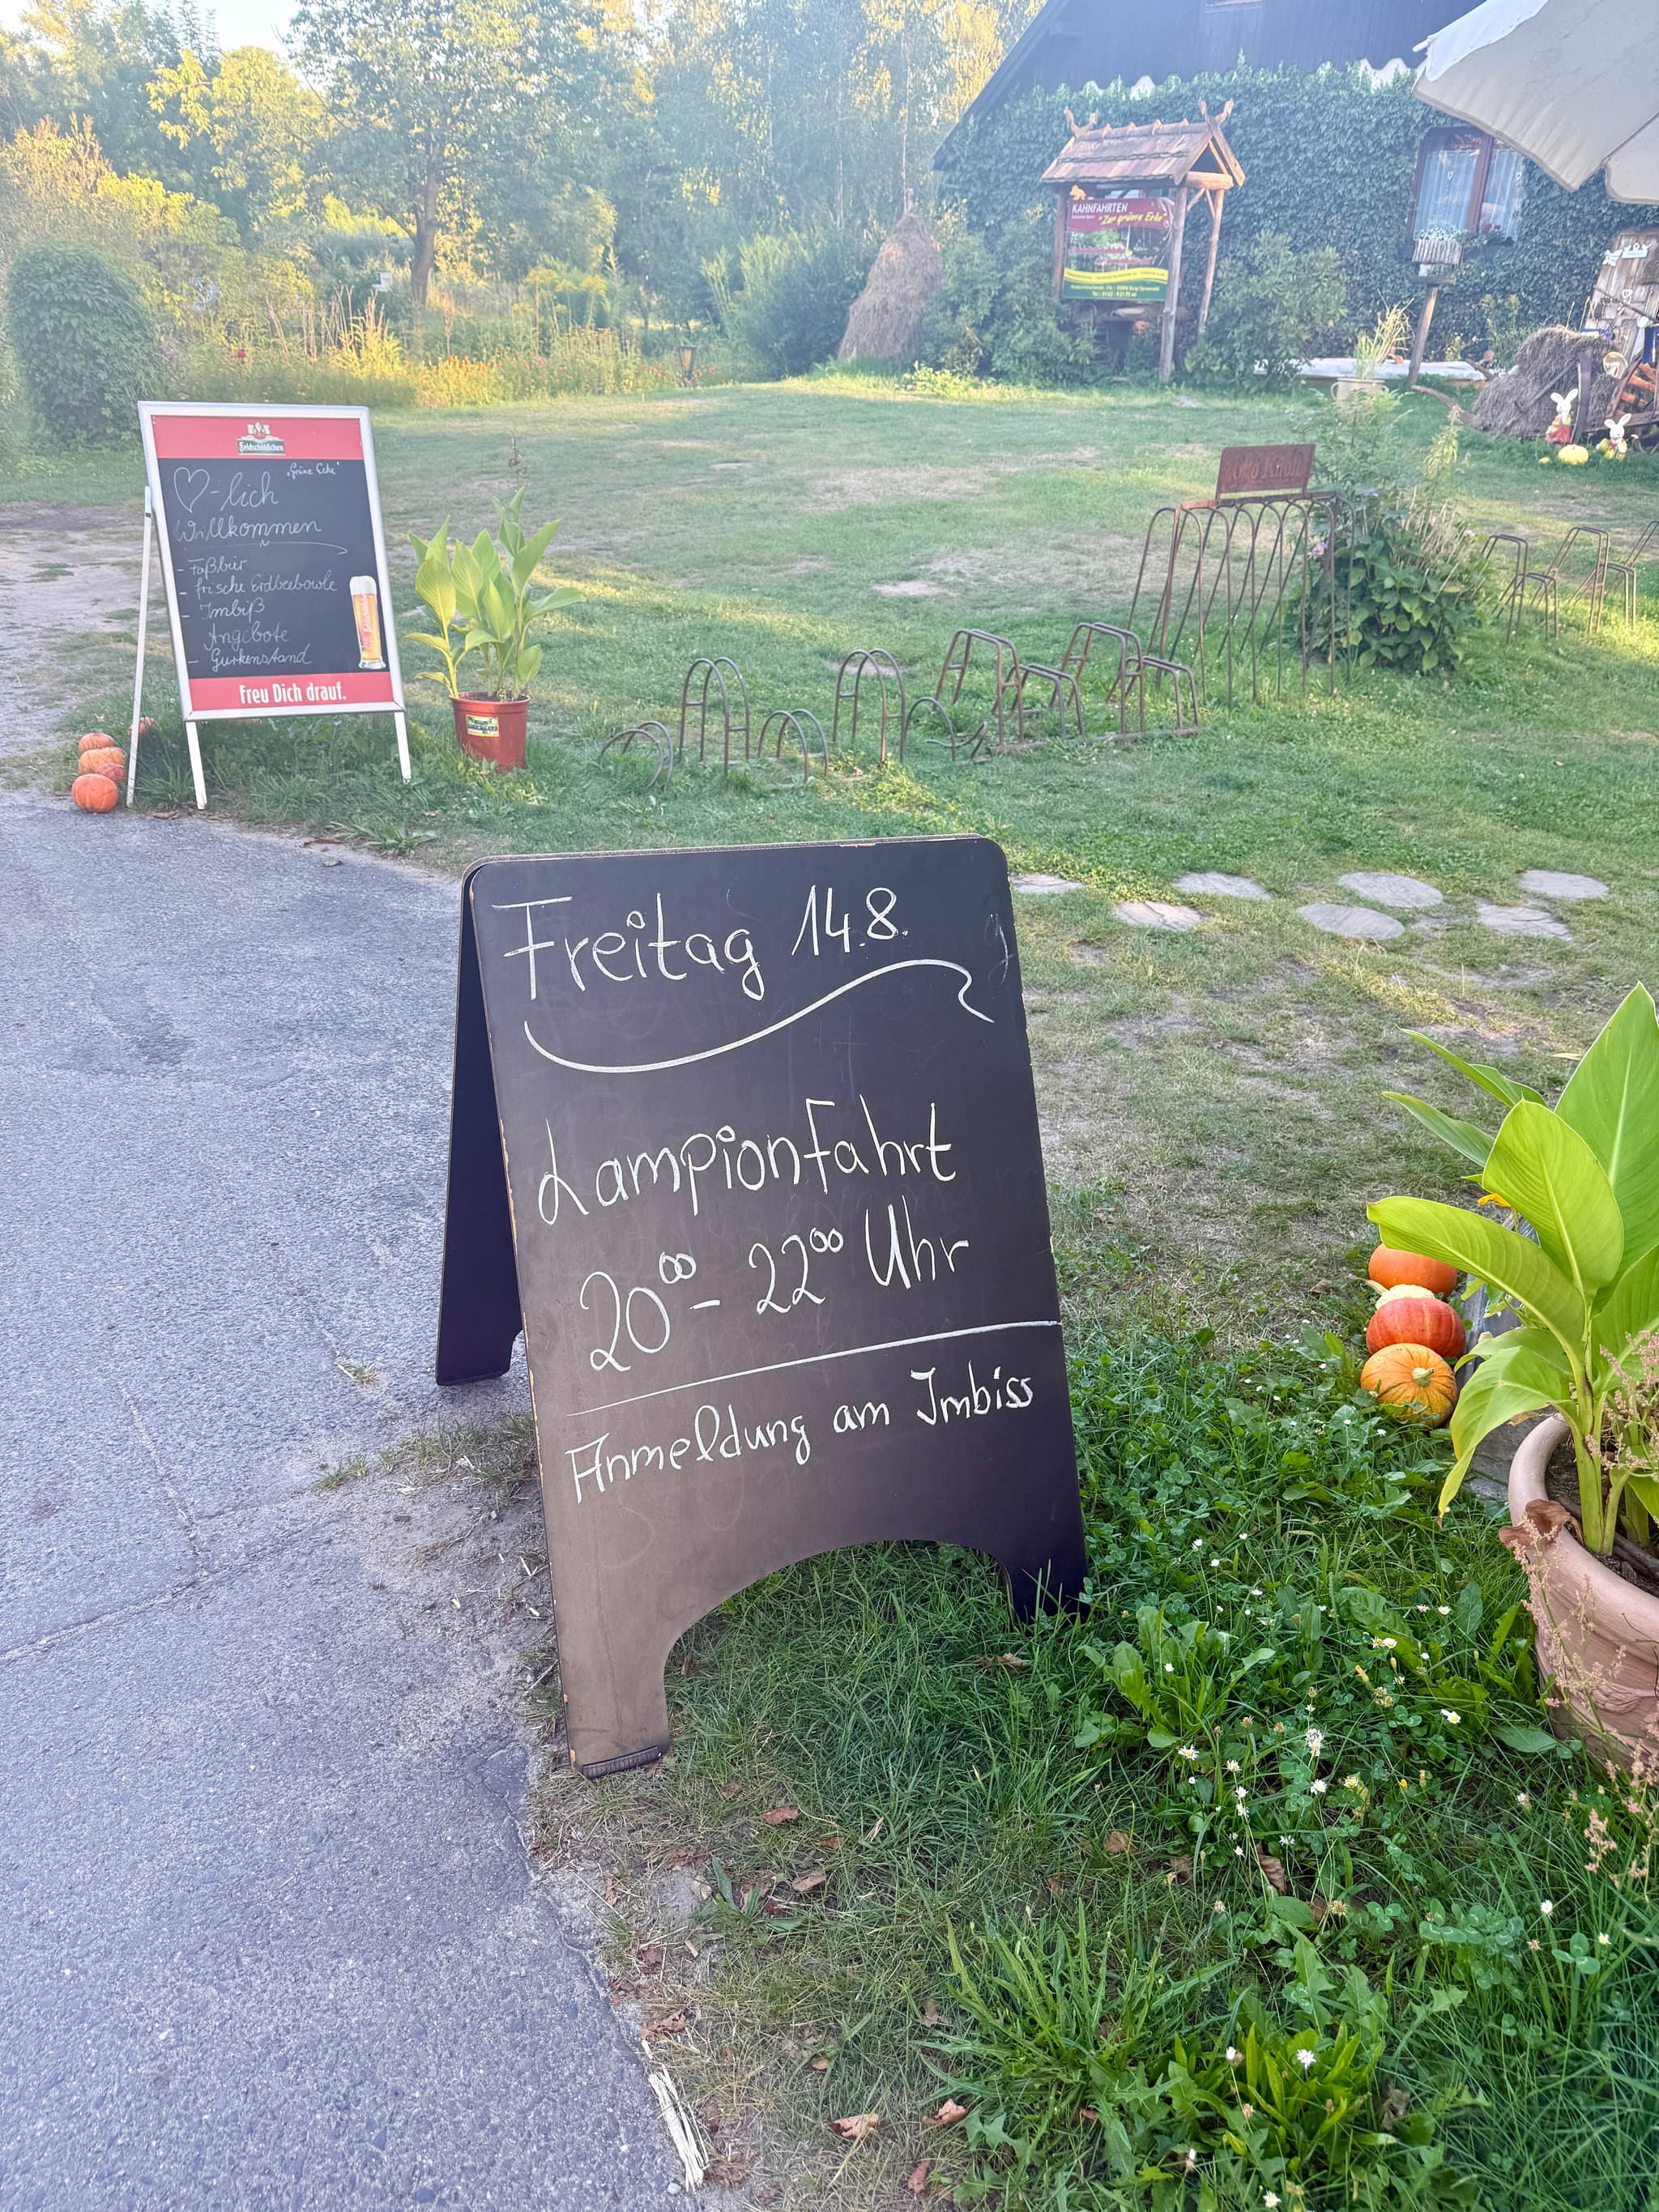 Feldschlößchen
"Grüne Ecke"
♡-lich
Willkommen
- Faßbier
- frische Erdbeerbowle
- Imbiß
Angebote
- Gurkenstand
Freu Dich drauf.
KAHNFAHRTEN
"Zur grünen Ecke"
Freitag 14.8.
Lampionfahrt
20⁰⁰ - 22⁰⁰ Uhr
Anmeldung am Imbiss